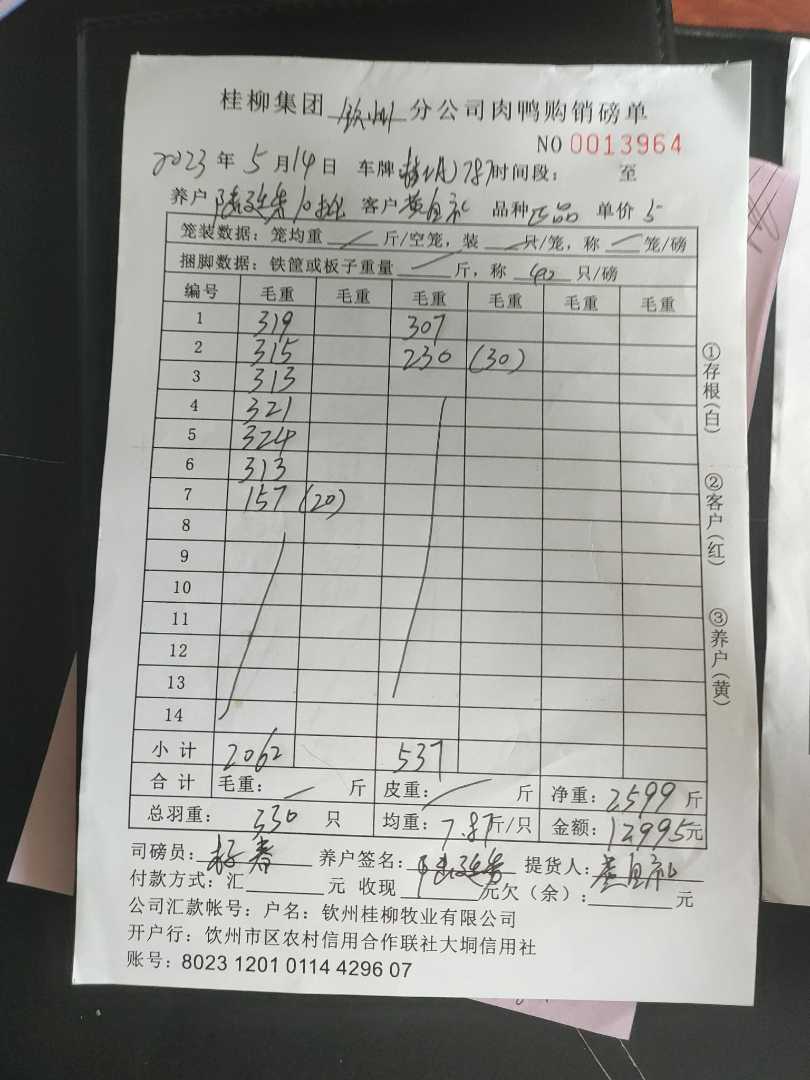 桂柳集团 钦州 分公司肉鸭购销磅单
NO 0013964
2023 年 5 月 14 日 车牌 787 时间段： 至
养户 客户 黄自礼 品种 正品 单价 5
笼装数据：笼均重 斤/空笼，装 只/笼，称 笼/磅
捆脚数据：铁筐或板子重量 斤，称 40 只/磅
编号 毛重 毛重 毛重 毛重 毛重 毛重
1 319 307
2 315 230 (30)
3 313
4 321
5 324
6 313
7 157 (20)
8
9
10
11
12
13
14
小 计 2062 537
合 计 毛重： 斤 皮重： 斤 净重：2599 斤
总羽重： 330 只 均重：7.87斤/只 金额：12995元
司磅员： 养户签名： 提货人：黄自礼
付款方式：汇 元 收现 元欠（余）： 元
公司汇款帐号：户名：钦州桂柳牧业有限公司
开户行：饮州市区农村信用合作联社大垌信用社
账号：8023 1201 0114 4296 07
①存根（白）
②客户（红）
③养户（黄）